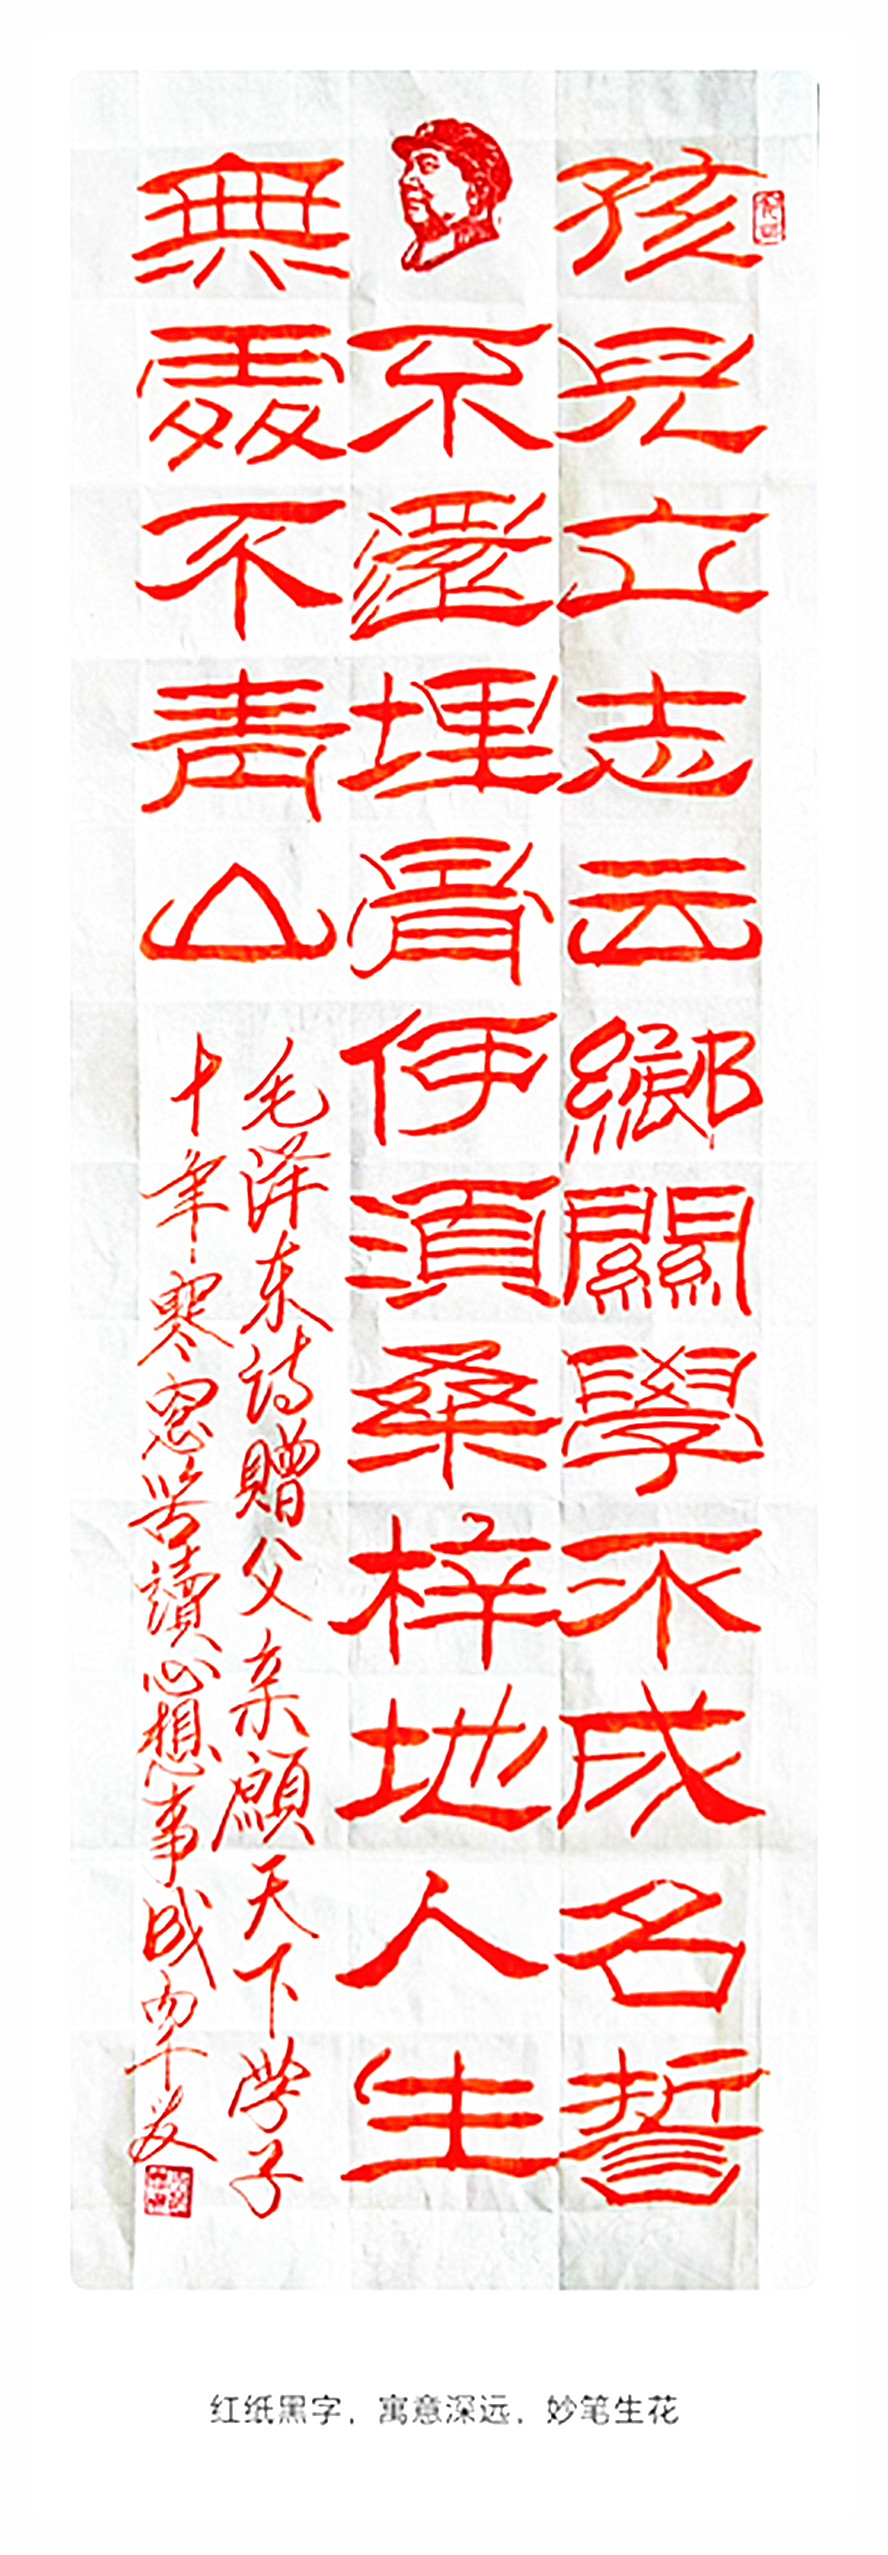 孩兒立志云鄉關學不成名誓
不還埋骨何須桑梓地人生
無處不青山
毛泽东诗贈父亲願天下学子
十年寒窓苦讀心想事成
红纸黑字，寓意深远，妙笔生花